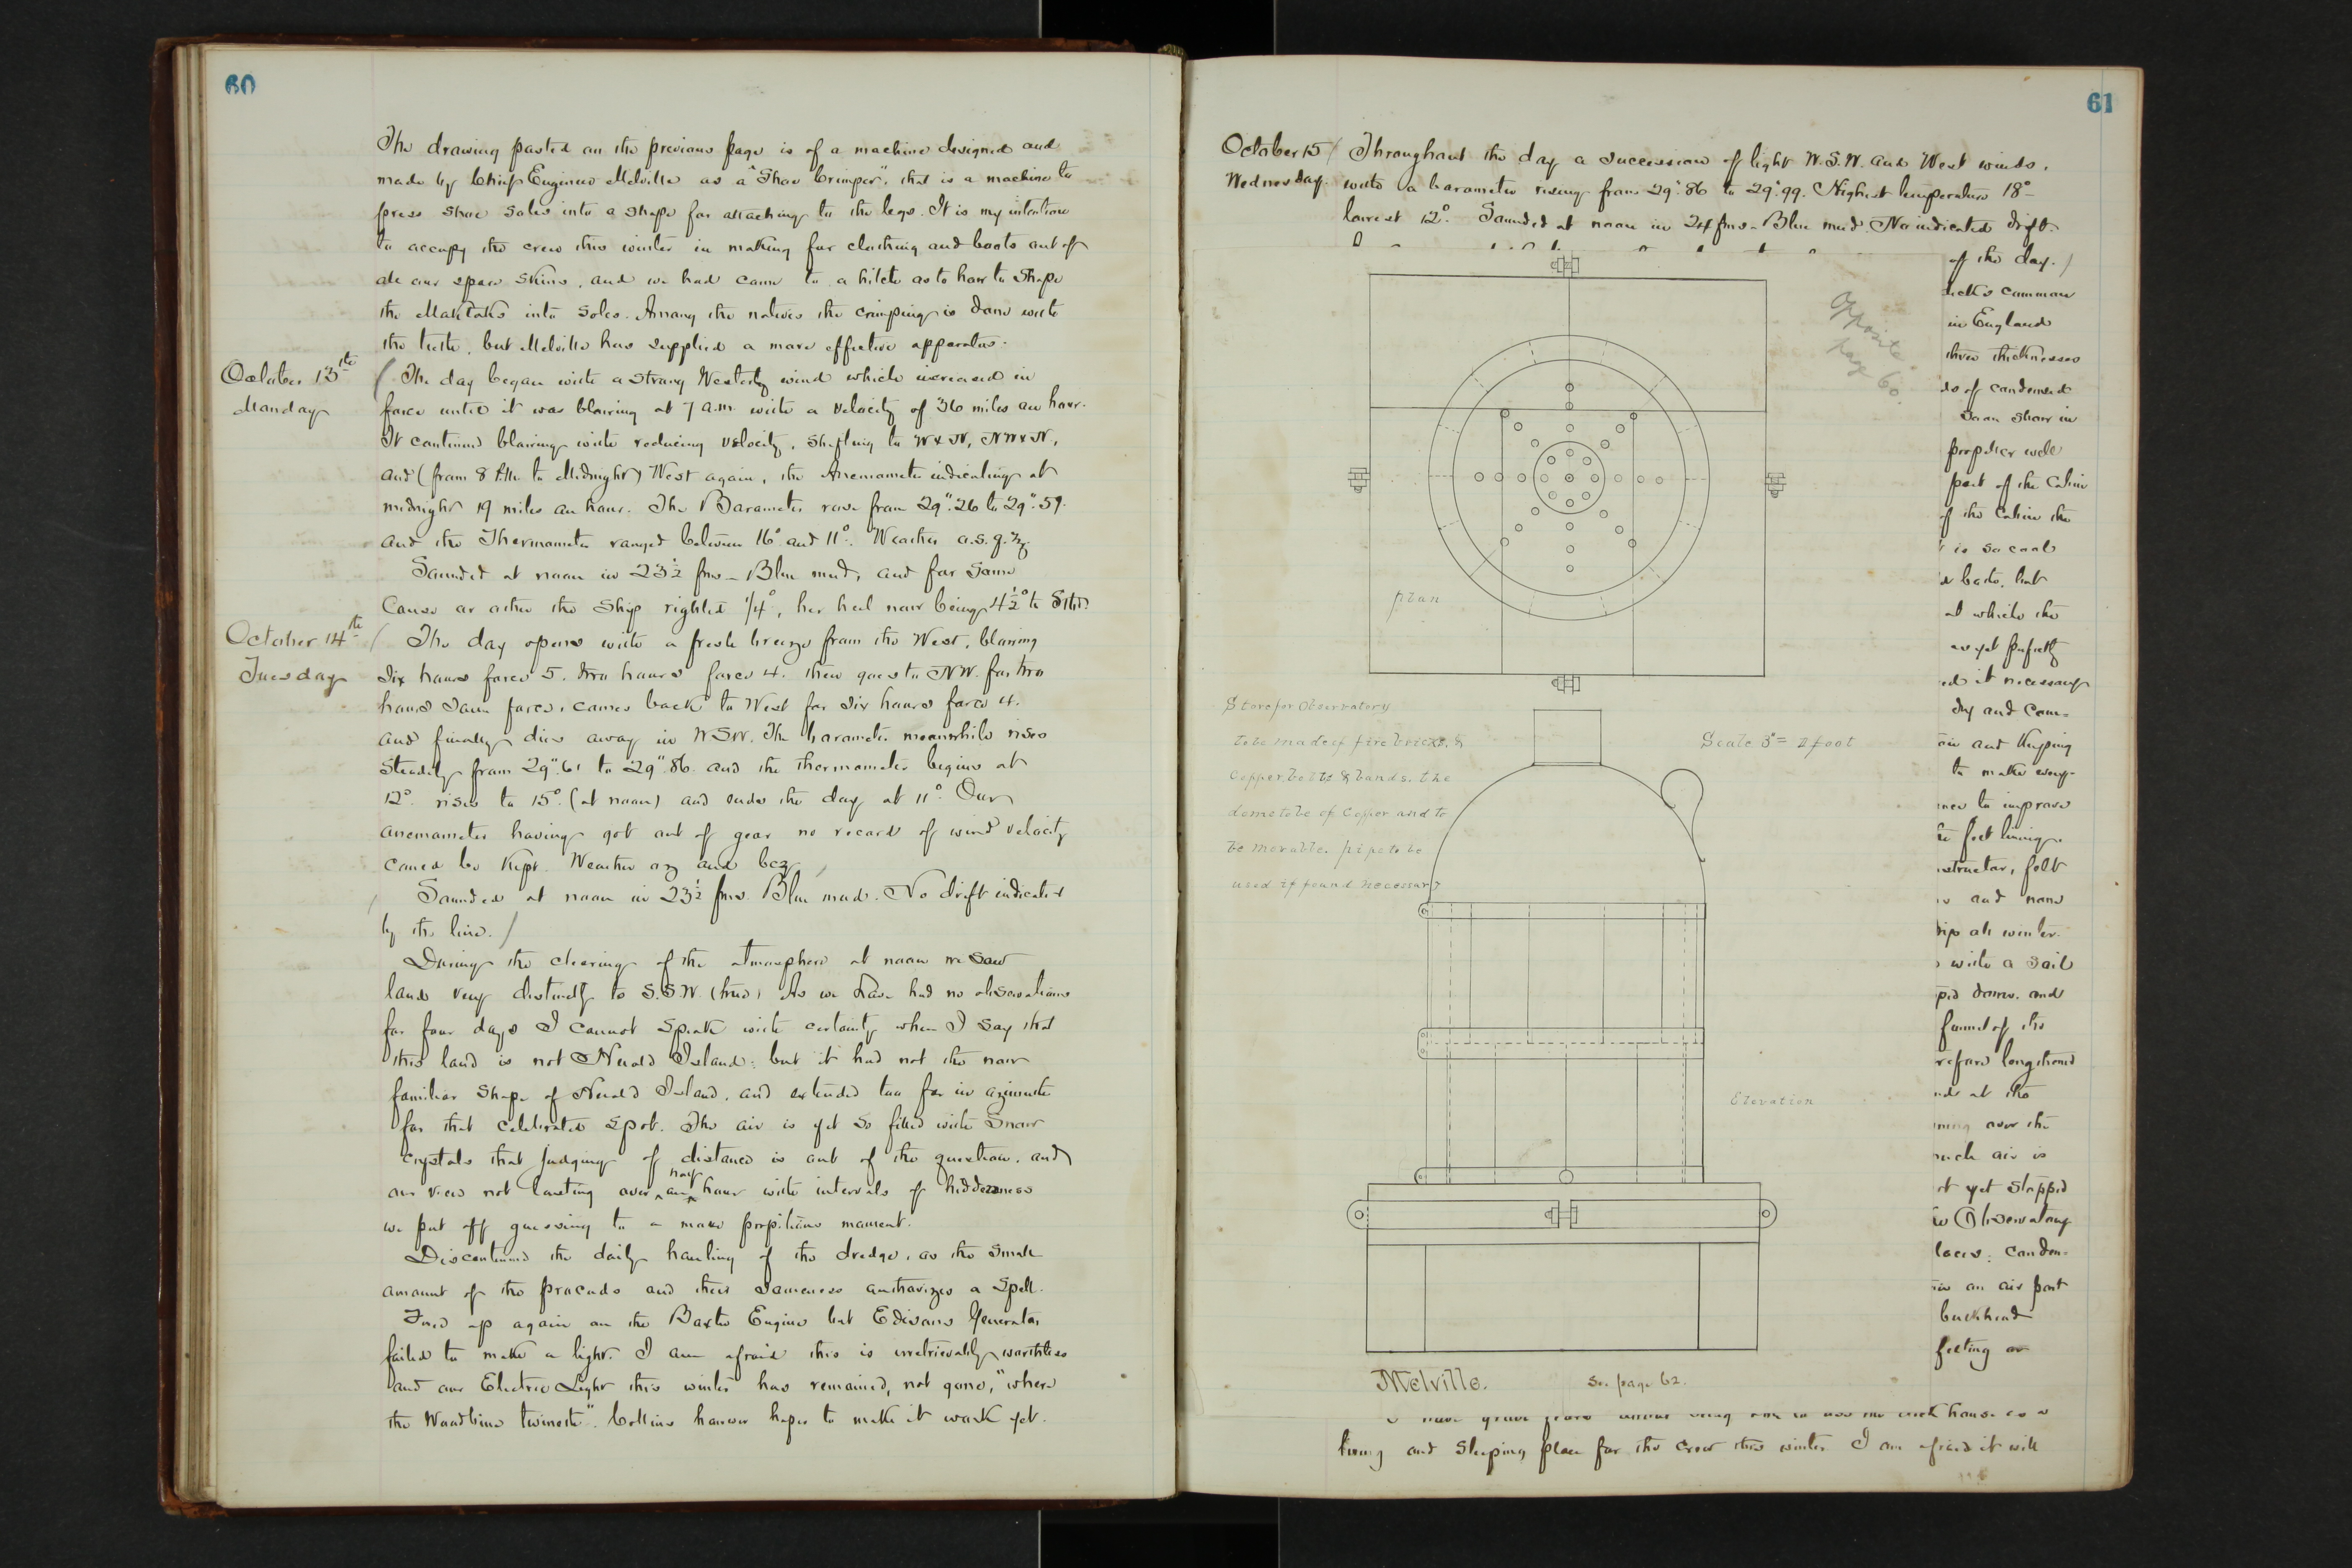 60
The drawing pasted on the previous page is of a machine designed and
made by Chief Engineer Melville as a "Shoe Crimper", that is a machine to
press shoe soles into a shape for attaching to the legs. It is my intention
to occupy the crew this winter in making fur clothing and boots out of
all our spare skins, and we had come to a hitch as to how to shape
the Maktaks into soles. Among the natives the crimping is done with
the teeth, but Melville has supplied a more effective apparatus.
October 13th
Monday
The day began with a strong Westerly wind which increased in
force until it was blowing at 7 a.m. with a velocity of 36 miles an hour.
It continued blowing with reducing velocity, shifting to W x N, NW x N,
and (from 8 P.M. to Midnight) West again, the Anemometer indicating at
midnight 19 miles an hour. The Barometer rose from 29".26 to 29".59.
and the Thermometer ranged between 16° and 11°. Weather o.s.q.
Sounded at noon in 23½ fms - Blue mud, and for some
cause or other the Ship righted ¼°, her heel now being 4½° to Stbd.
October 14th
Tuesday
The day opens with a fresh breeze from the West, blowing
six hours force 5, two hours force 4. then goes to NW. for two
hours same force, comes back to West for six hours force 4.
and finally dies away in WSW. The barometer meanwhile rises
steadily from 29".61 to 29".86. and the thermometer begins at
12°. rises to 15° (at noon) and ends the day at 11°. Our
anemometer having got out of gear no record of wind velocity
could be kept. Weather oz and bcz
Sounded at noon in 23½ fms. Blue mud. No drift indicated
by the line.
During the clearing of the atmosphere at noon we saw
land very distinctly to S.S.W. (true) As we have had no observations
for four days I cannot speak with certainty when I say that
this land is not Herald Island: but it had not the now
familiar shape of Herald Island, and extended too far in azimuth
for that celebrated spot. The air is yet so filled with snow
crystals that judging of distance is out of the question, and
our view not lasting over half an hour with intervals of hiddenness
we put off guessing to a more propitious moment.
Discontinued the daily hauling of the dredge, as the small
amount of the proceeds and their sameness authorizes a spell.
Fired up again on the Baxter Engine but Edison's Generator
failed to make a light. I am afraid this is irretrievably worthless
and our Electric Light this winter has remained, not gone, "where
the Woodbine twineth". Collins however hopes to make it work yet.
61
October 15
Wednesday.
Throughout the day a succession of light W.S.W. and West winds,
with a barometer rising from 29".86 to 29".99. Highest temperature 18° -
lowest 12°. Sounded at noon in 24 fms - Blue mud. No indicated drift.
of the day.
common
in England
three thicknesses
of condensed
snow in
well
part of the Cabin
of the Cabin the
is so cool
but
at which the
as yet perfectly
it necessary
dry and com=
and keeping
to make every-
to improve
felt lining.
felt
and none
all winter.
with a sail
down. and
funnel of the
at the
over the
air is
yet stopped
Observatory
conden=
an air port
bulkhead
felting or
opposite
page 60.
plan
Stove for Observatory
to be made of fire bricks, &
Copper bolts & bands. the
dome to be of Copper and to
be movable. pipe to be
used if found necessary
Scale 3" = 1 foot
Elevation
Melville.
See page 62.
living and sleeping place for the crew this winter. I am afraid it will